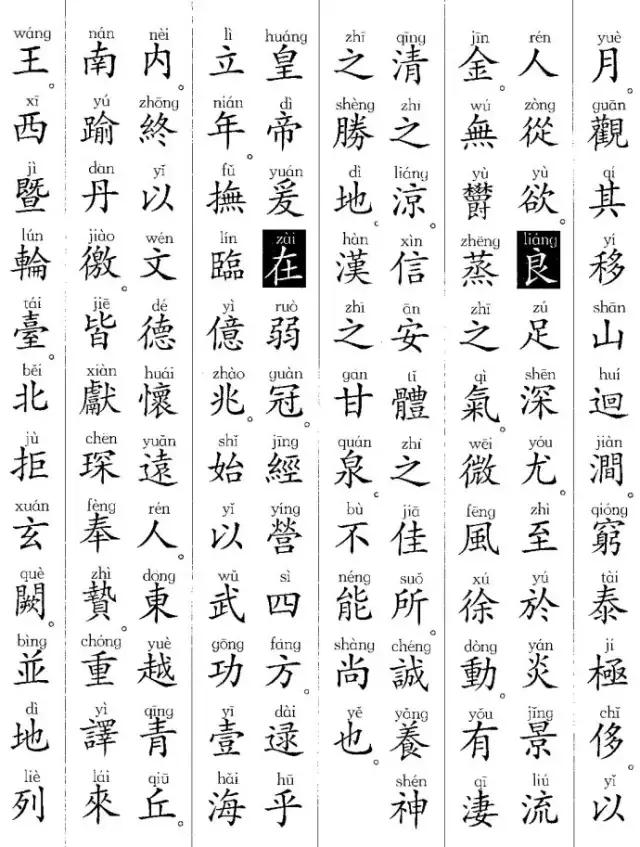 yuè guān qí yí shān huí jiàn qióng tài jí chǐ yǐ
月。觀其移山迴澗窮泰極侈。以
rén zòng yù liáng zú shēn yóu zhì yú yán jǐng liú
人從欲。良足深尤。至於炎景流
jīn wú yù zhēng zhī qì wēi fēng xú dòng yǒu qī
金。無鬱蒸之氣。微風徐動。有淒
qīng zhī liáng xìn ān tǐ zhī jiā suǒ chéng yǎng shén
清之涼。信安體之佳所。誠養神
zhī shèng dì hàn zhī gān quán bù néng shàng yě
之勝地。漢之甘泉。不能尚也。
huáng dì yuán zài ruò guàn jīng yíng sì fāng dài hū
皇帝爰在弱冠。經營四方。逮乎
lì nián fǔ lín yì zhào shǐ yǐ wǔ gōng yī hǎi
立年。撫臨億兆。始以武功壹海
nèi zhōng yǐ wén dé huái yuǎn rén dōng yuè qīng qiū
內。終以文德懷遠人。東越青丘。
nán yú dān jiào jiē xiàn chēn fèng zhì chóng yì lái
南踰丹徼。皆獻琛奉贄。重譯來
wáng xī jì lún tái běi jù xuán què bìng dì liè
王。西暨輪臺。北拒玄闕。並地列